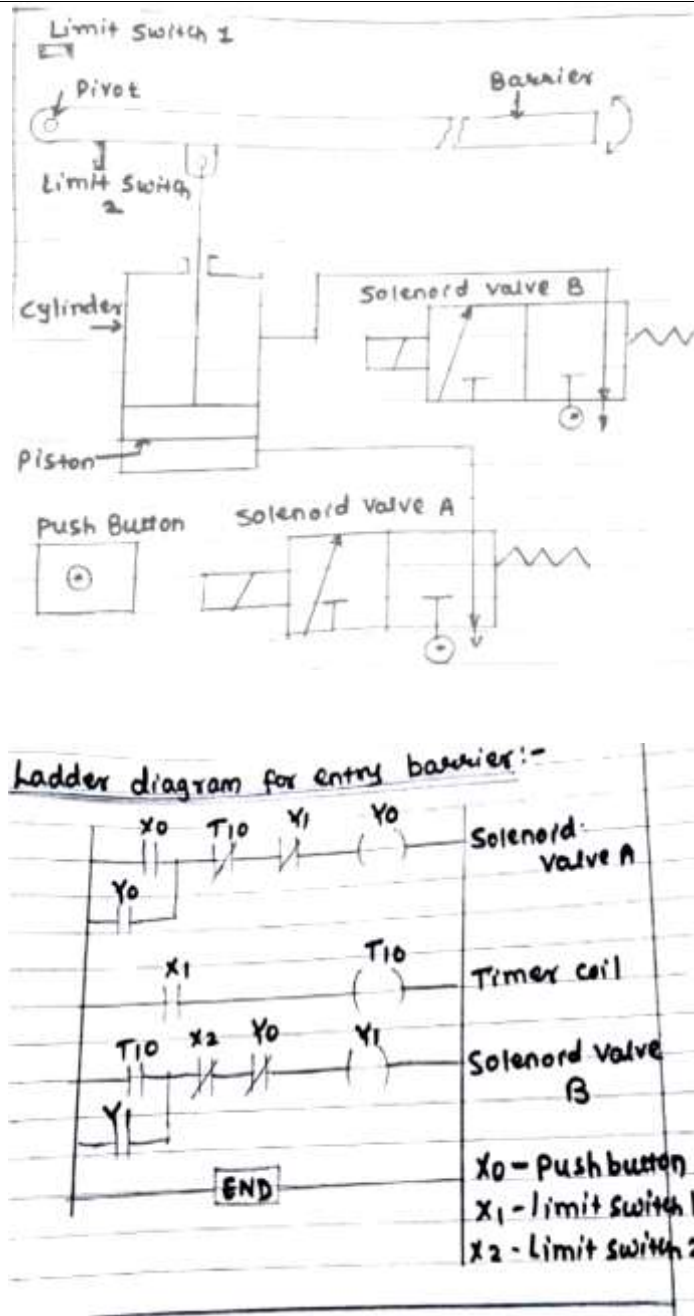 Limit Switch 1
Pivot
Barrier
Limit Switch
2
Cylinder
Solenord valve B
Piston
Push Button
Solenord valve A
Ladder diagram for entry barrier:-
X0 T10 Y1 Y0
Solenord
valve A
Y0
X1 T10
Timer coil
T10 X2 Y0 Y1
Solenord valve
B
Y1
END
X0 - Push button
X1 - limit switch 1
X2 - Limit switch 2